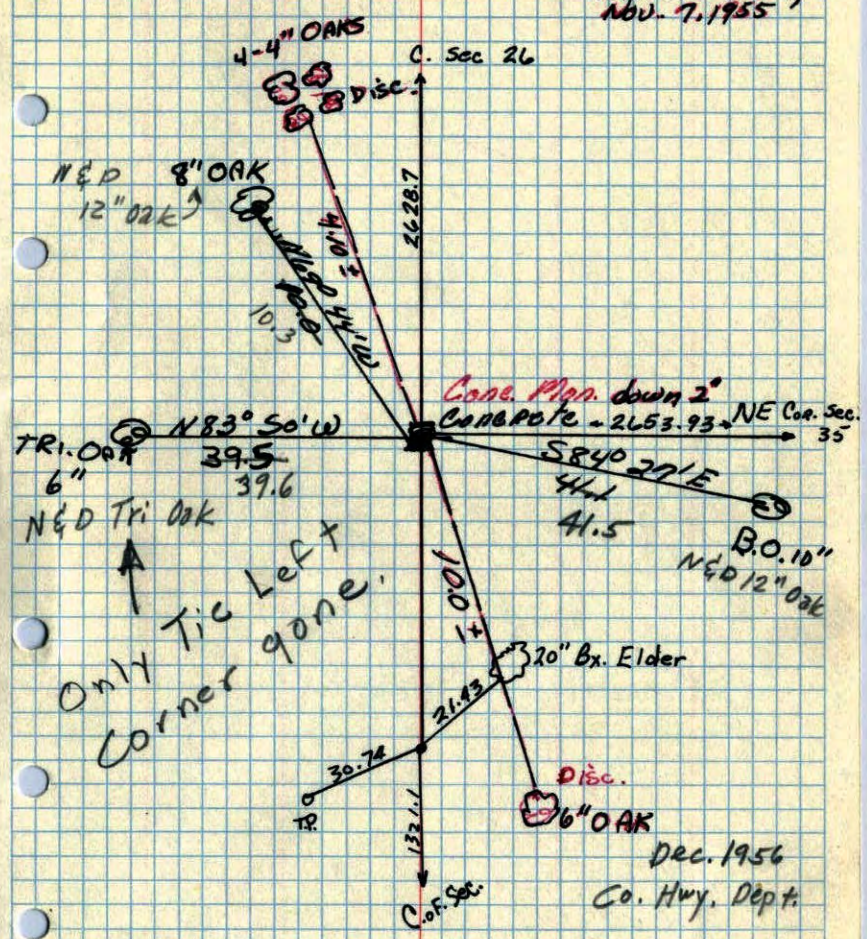 Nov. 7, 1955
4-4" OAKS
C. Sec 26
Disc.
N&D
12" Oak
8" OAK
2628.7
4.0 ±
N68° 44' W
10.0
10.3
Conc. Mon. down 2"
Concrete - 2653.93 - NE Cor. Sec. 35
TRI. OAK
6"
N83° 50' W
39.5
39.6
N&D Tri Oak
S84° 27' E
41.1
41.5
B.O. 10"
N&D 12" Oak
Only Tie Left
Corner gone.
10.0 ±
20" Bx. Elder
21.43
30.74
T.P.
1321.1
Disc.
6" OAK
C. of. Sec.
Dec. 1956
Co. Hwy. Dept.